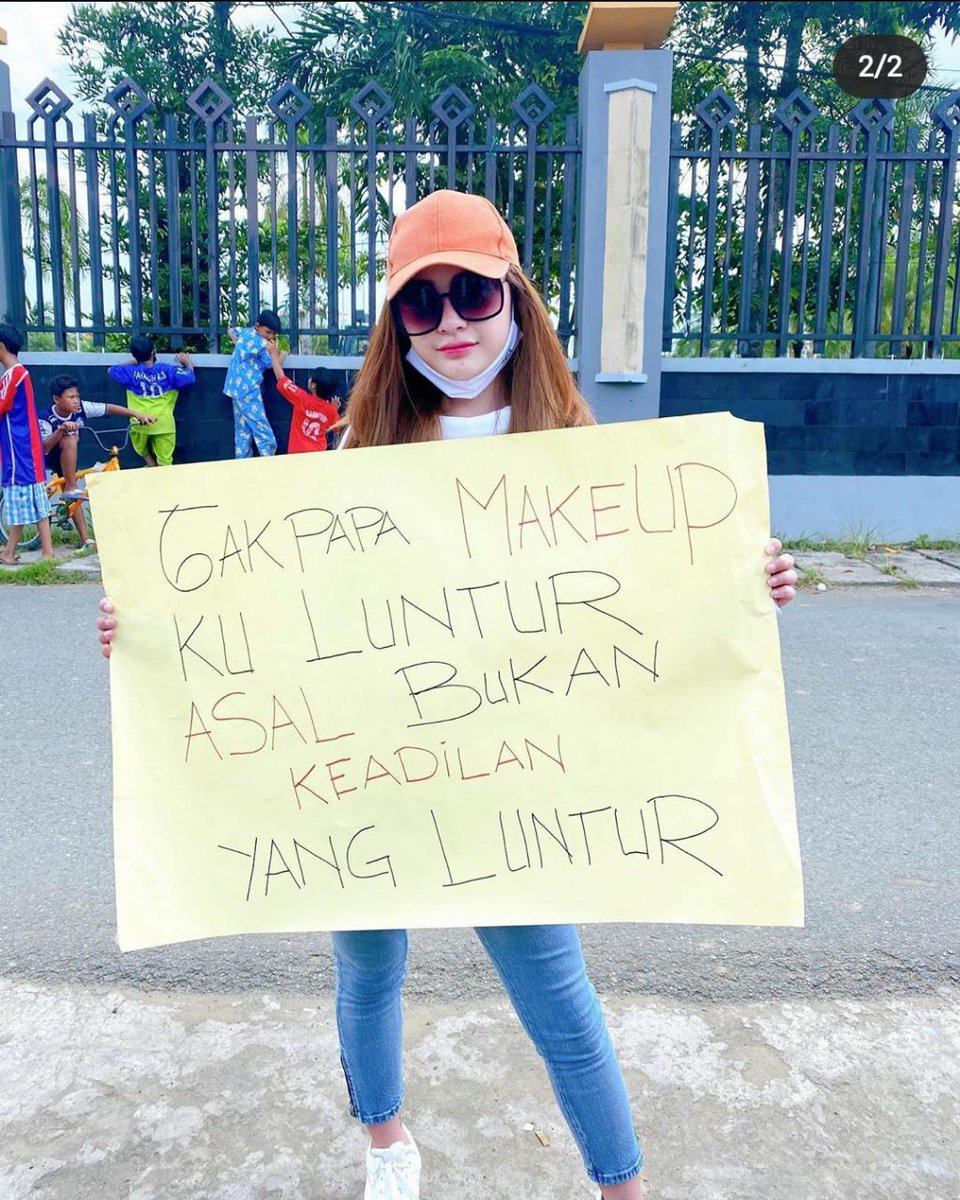 2/2
GAKPAPA MAKEUP
KU LUNTUR
ASAL BUKAN
KEADiLAN
YANG LUNTUR
10